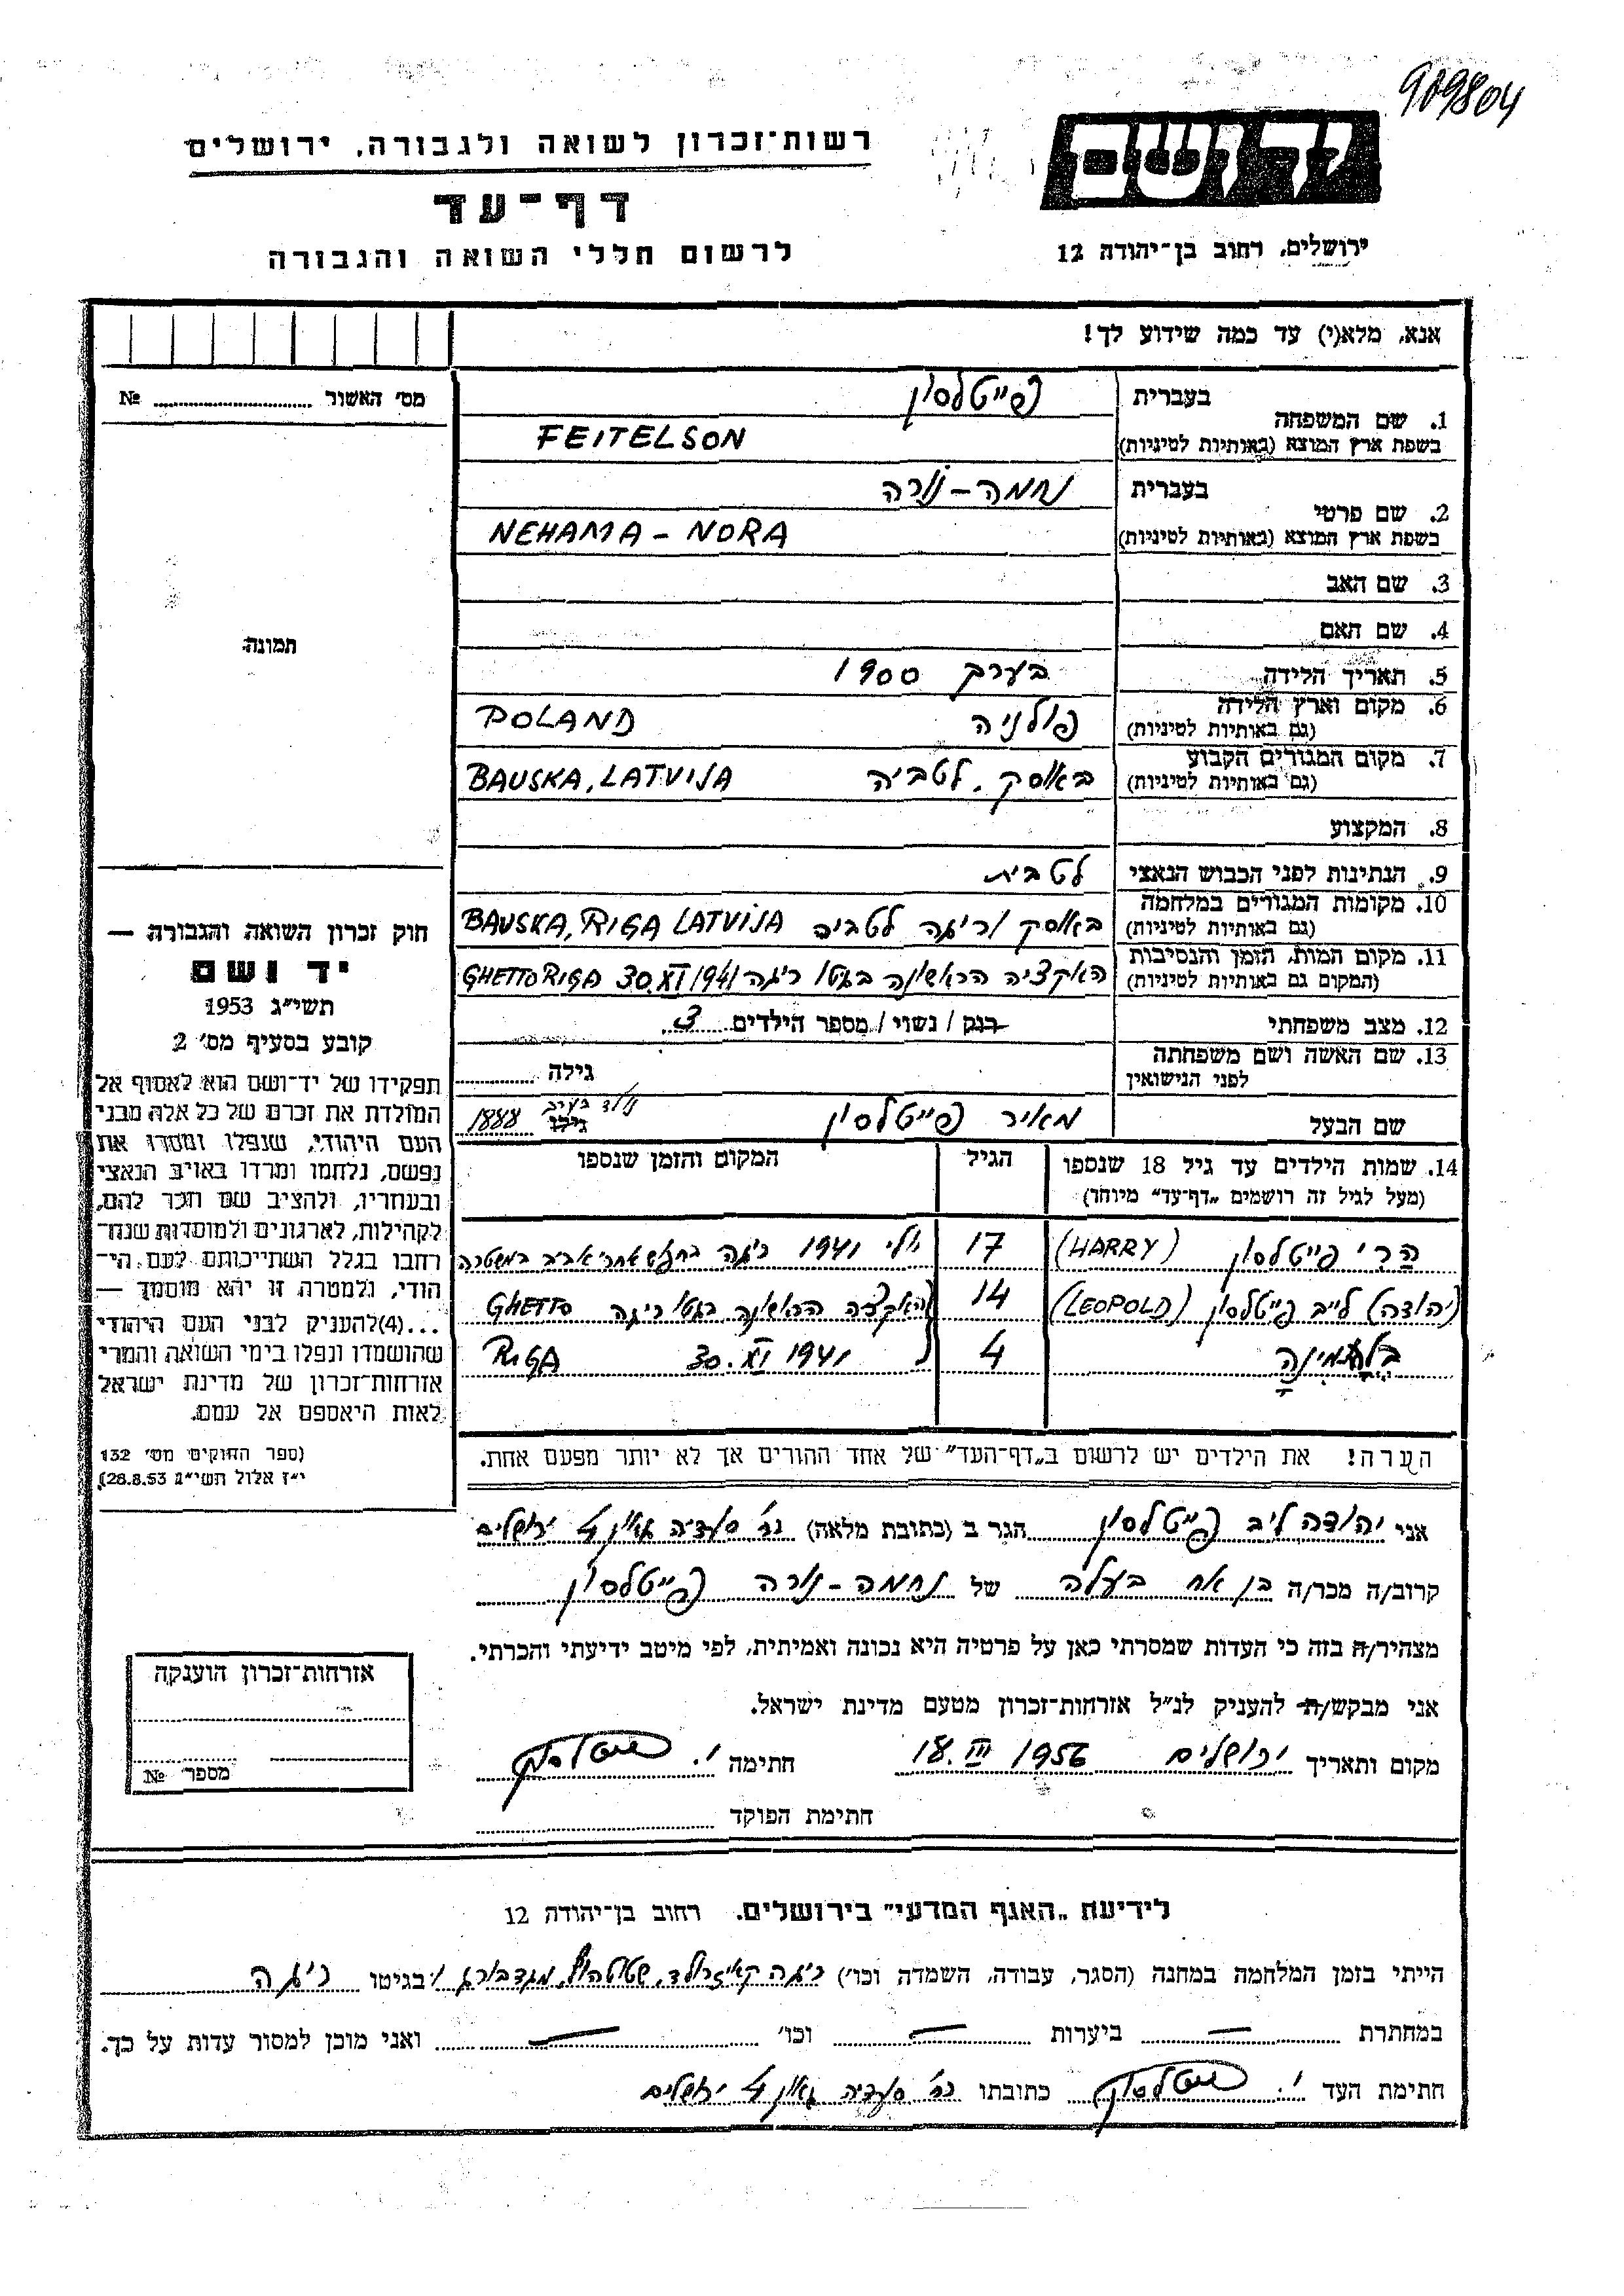 909804
יד ושם
ירושלים, רחוב בן־יהודה 12
רשות־זכרון לשואה ולגבורה, ירושלים
דף־עד
לרשום חללי השואה והגבורה
אנא, מלא(י) עד כמה שידוע לך!
מס׳ האשור № 
1. שם המשפחה בעברית פייטלסון
בשפת ארץ המוצא (באותיות לטיניות) FEITELSON
2. שם פרטי בעברית נחמה-נורה
בשפת ארץ המוצא (באותיות לטיניות) NEHAMA - NORA
3. שם האב
4. שם האם
5. תאריך הלידה בערך 1900
6. מקום וארץ הלידה (גם באותיות לטיניות) פולניה POLAND
7. מקום המגורים הקבוע (גם באותיות לטיניות) באוסק. לטביה BAUSKA, LATVIJA
8. המקצוע
9. הנתינות לפני הכבוש הנאצי לטבית
10. מקומות המגורים במלחמה (גם באותיות לטיניות) באוסק וריגה לטביה BAUSKA, RIGA LATVIJA
11. מקום המות, הזמן והנסיבות (המקום גם באותיות לטיניות) האקציה הראשונה בגטו ריגה 30.XI 1941 GHETTO RIGA
12. מצב משפחתי רוק / נשוי / מספר הילדים 3
13. שם האשה ושם משפחתה לפני הנישואין גילה
שם הבעל מאיר פייטלסון גילו נולד בערך 1888
14. שמות הילדים עד גיל 18 שנספו הגיל המקום והזמן שנספו
(מעל לגיל זה רושמים „דף־עד” מיוחד)
הרי פייטלסון (HARRY) 17 יולי 1941 ריגה במשטרה
(יהודה) לייב פייטלסון (LEOPOLD) 14 האקציה הראשונה בגטו ריגה GHETTO
4 30.XI 1941 RIGA
הערה! את הילדים יש לרשום ב„דף־העד” של אחד ההורים אך לא יותר מפעם אחת.
תמונה
חוק זכרון השואה והגבורה —
יד ושם
תשי״ג 1953
קובע בסעיף מס׳ 2
תפקידו של יד־ושם הוא לאסוף אל
המולדת את זכרם של כל אלה מבני
העם היהודי, שנפלו ומסרו את
נפשם, נלחמו ומרדו באויב הנאצי
ובעוזריו, ולהציב שם וזכר להם,
לקהילות, לארגונים ולמוסדות שנח־
רבו בגלל השתייכותם לעם הי־
הודי, ולמטרה זו יהא מוסמך —
...(4)להעניק לבני העם היהודי
שהושמדו ונפלו בימי השואה והמרי
אזרחות־זכרון של מדינת ישראל
לאות היאספם אל עמם.
(ספר החוקים מס׳ 132
י״ז אלול תשי״ג 28.8.53)
אני יהודה ליב פייטלסון הגר ב (כתובת מלאה) רח׳ סעדיה גאון 4 ירושלים
קרוב/ה מכר/ה בן אח בעלה של נחמה-נורה פייטלסון
מצהיר/ה בזה כי העדות שמסרתי כאן על פרטיה היא נכונה ואמיתית, לפי מיטב ידיעתי והכרתי.
אני מבקש/ת להעניק לנ״ל אזרחות־זכרון מטעם מדינת ישראל.
מקום ותאריך ירושלים 18.III 1956 חתימה י. פייטלסון
חתימת הפוקד
אזרחות־זכרון הוענקה
מספר №
לידיעת „האגף המדעי” בירושלים, רחוב בן־יהודה 12
הייתי בזמן המלחמה במחנה (הסגר, עבודה, השמדה וכו׳) ריגה קאיזרולד, שטוטהוף, מגדבורג ו בגיטו ריגה
במחתרת — ביערות — וכו׳ — ואני מוכן למסור עדות על כך.
חתימת העד י. פייטלסון כתובתו רח׳ סעדיה גאון 4 ירושלים